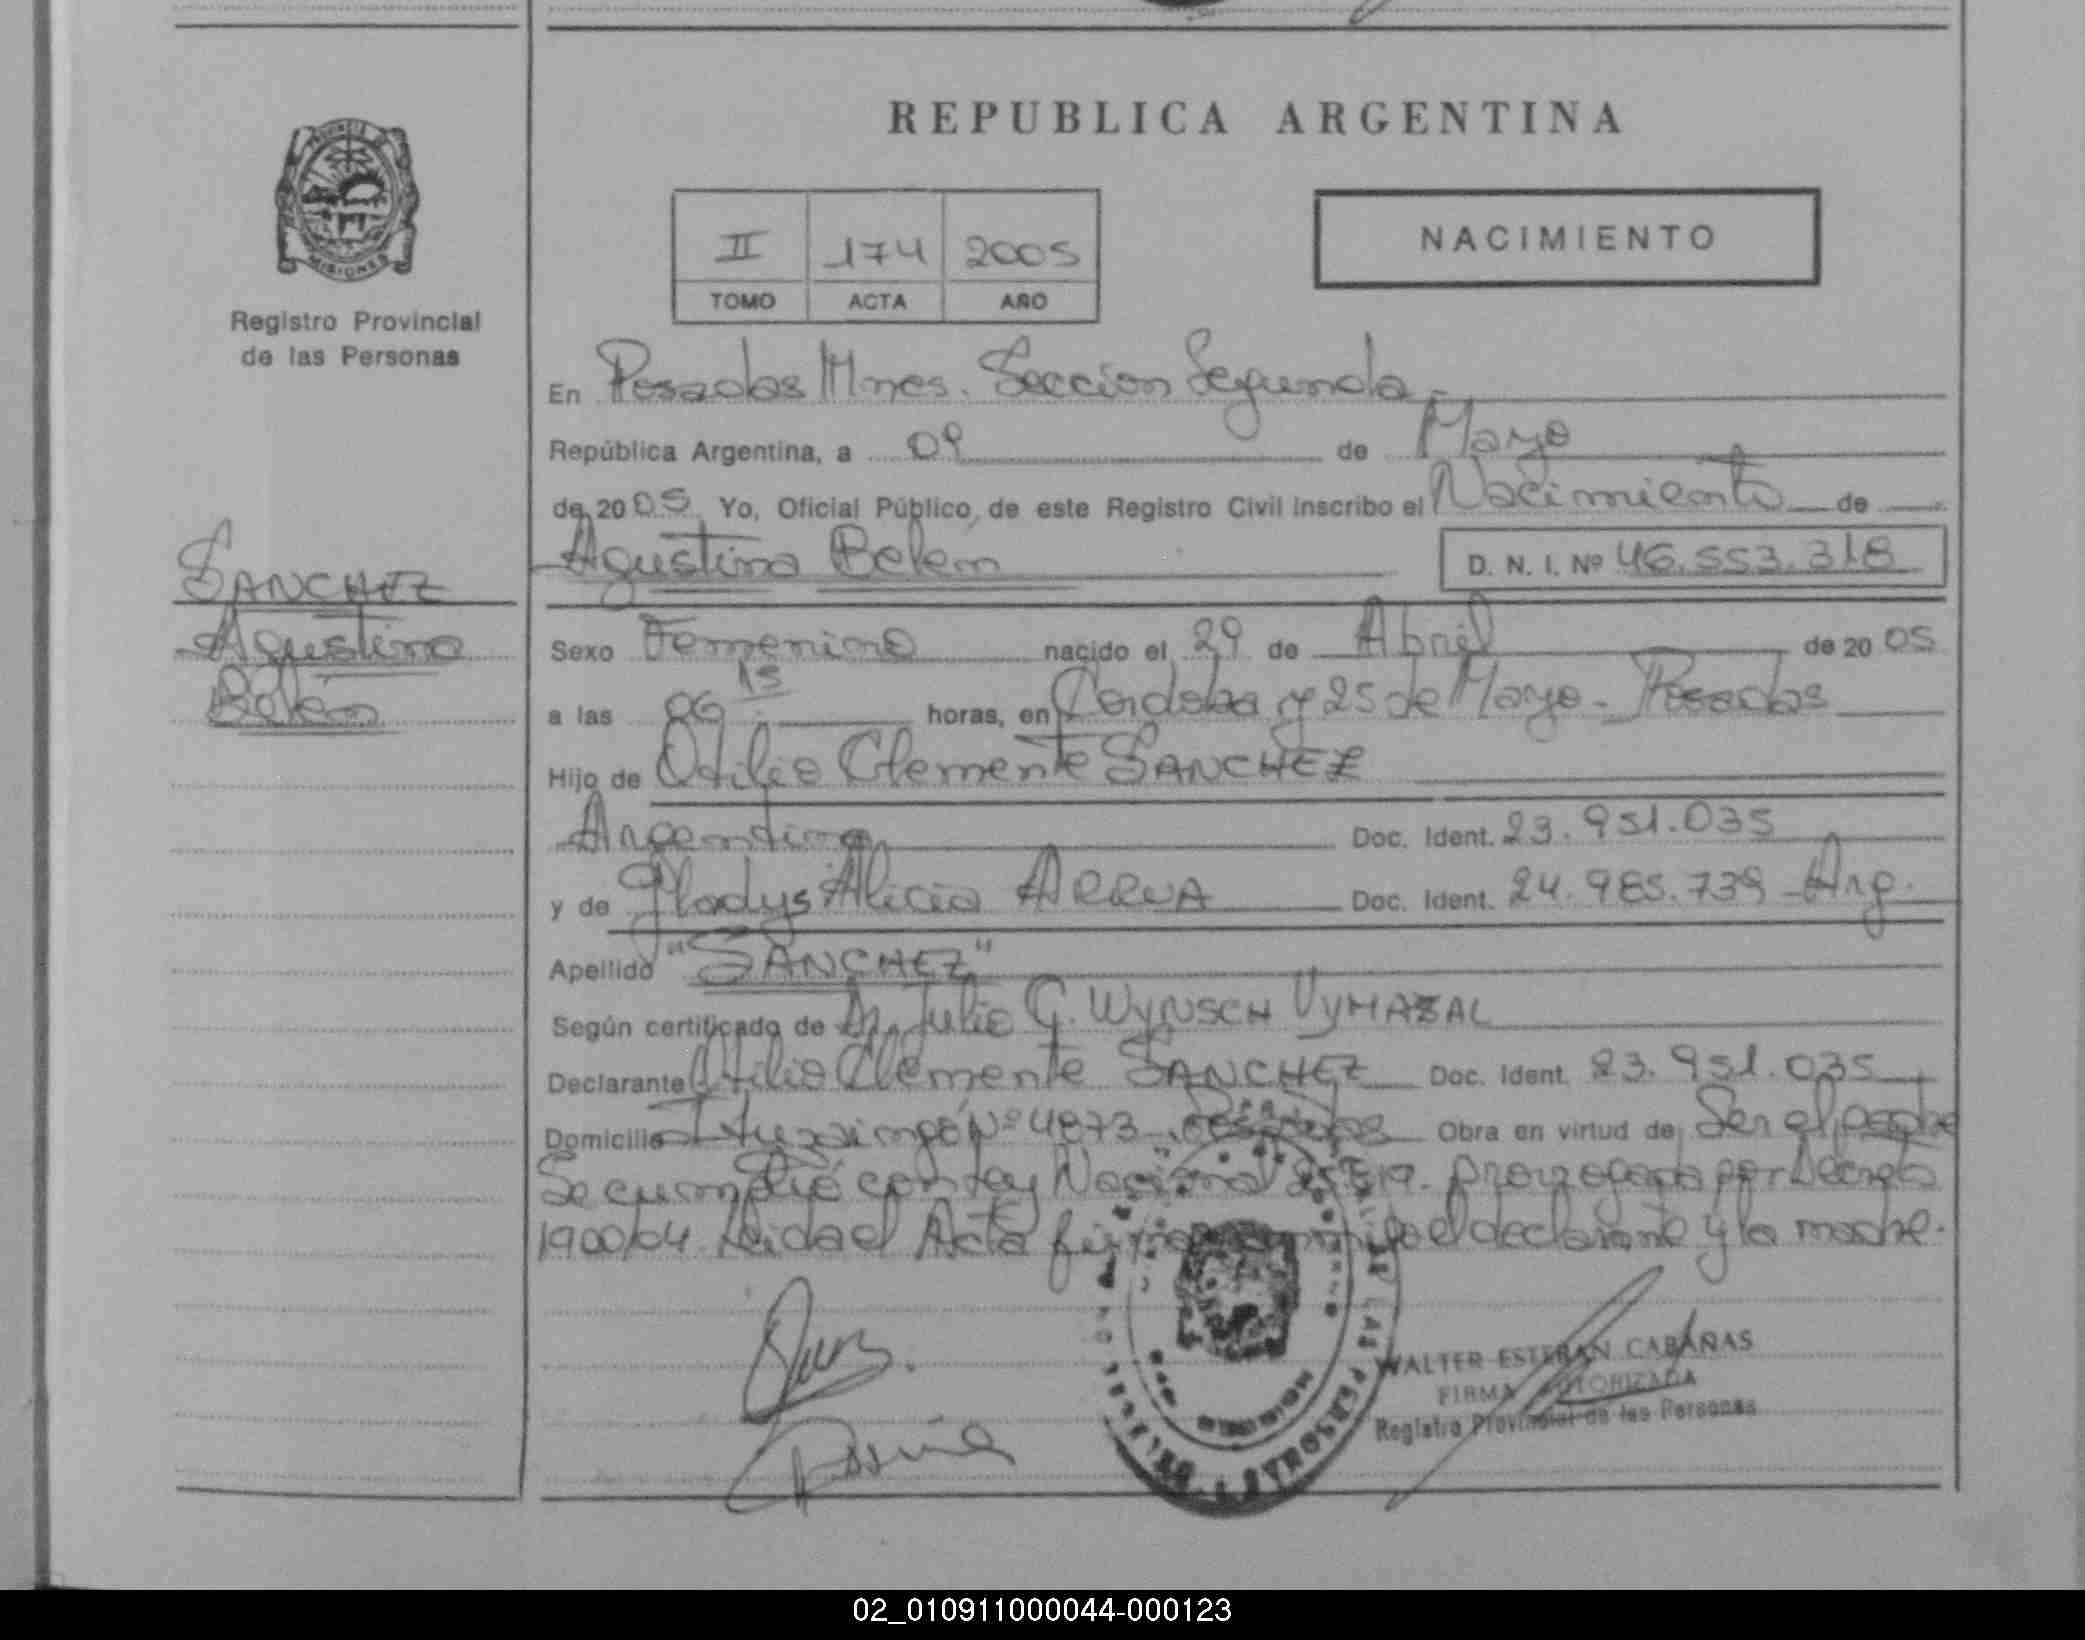 REPUBLICA ARGENTINA
PROVINCIA DE
MISIONES
Registro Provincial
de las Personas
II 174 2005
TOMO ACTA AÑO
NACIMIENTO
En Posadas Mnes. Seccion Segunda.
República Argentina, a 09 de Mayo
de 2005 Yo, Oficial Público, de este Registro Civil inscribo el Nacimiento de
Agustina Belem D. N. I. Nº 46.553.318
SANCHEZ
Agustina
Belem
Sexo Femenino nacido el 29 de Abril de 2005
a las 06:15 horas, en Cordoba y 25 de Mayo - Posadas
Hijo de Otilio Clemente SANCHEZ
Argentino Doc. Ident. 23.951.035
y de Gladys Alicia ARRUA Doc. Ident. 24.985.739 Arg.
Apellido "SANCHEZ"
Según certificado de Dr. Julio G. WYNSCH VYMAZAL
Declarante Otilio Clemente SANCHEZ Doc. Ident. 23.951.035
Domicilio Ituzaingó Nº 4873 - Posadas Obra en virtud de Ser el padre
Se cumplió con Ley Nacional prorrogada por Decreto
1900/04. Leida el Acta firman conmigo el declarante y la madre.
DE LAS PERSONAS
MISIONES
WALTER ESTEBAN CABAÑAS
FIRMA AUTORIZADA
Registro Provincial de las Personas
02_010911000044-000123